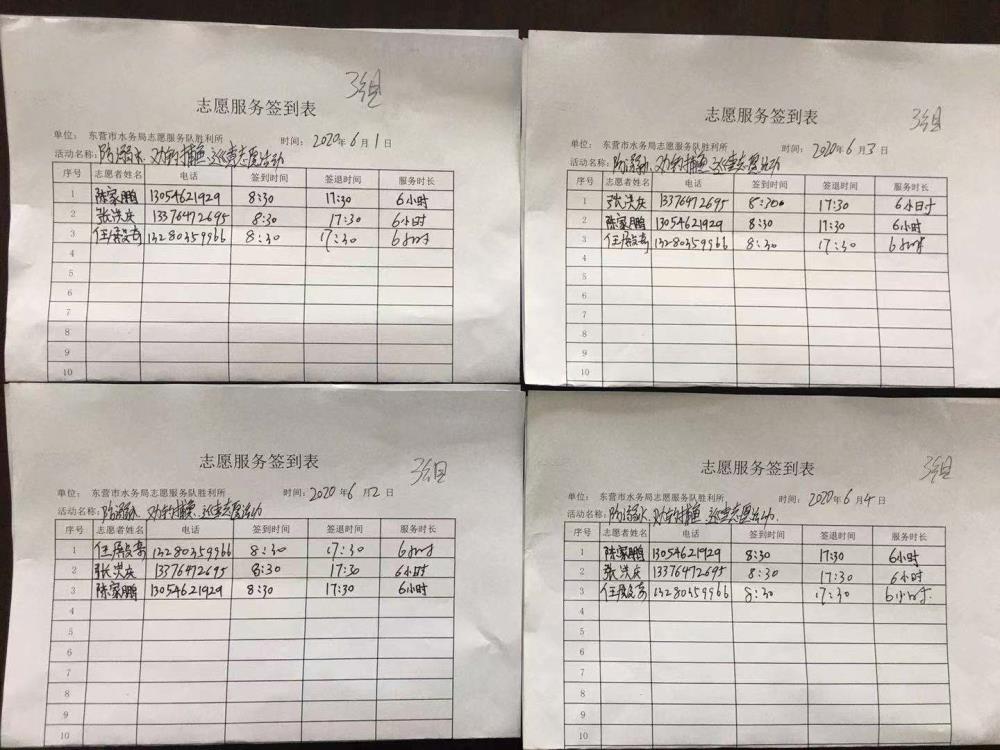 3组
志愿服务签到表
单位： 东营市水务局志愿服务队胜利所 时间： 2020年 6 月 1 日
活动名称：防溺水、劝钓捕鱼、巡查志愿活动
序号 志愿者姓名 电话 签到时间 签退时间 服务时长
1 陈家鹏 13054621929 8:30 17:30 6小时
2 张洪庆 13376472695 8:30 17:30 6小时
3 13280359966 8:30 17:30 6小时
4
5
6
7
8
9
10
3组
志愿服务签到表
单位： 东营市水务局志愿服务队胜利所 时间： 2020年 6 月 3 日
活动名称：防溺水、劝钓捕鱼、巡查志愿活动
序号 志愿者姓名 电话 签到时间 签退时间 服务时长
1 张洪庆 13376472695 8:30 17:30 6小时
2 陈家鹏 13054621929 8:30 17:30 6小时
3 13280359966 8:30 17:30 6小时
4
5
6
7
8
9
10
3组
志愿服务签到表
单位： 东营市水务局志愿服务队胜利所 时间：2020 年 6 月 2 日
活动名称：防溺水、劝钓捕鱼、巡查志愿活动
序号 志愿者姓名 电话 签到时间 签退时间 服务时长
1 13280359966 8:30 17:30 6小时
2 张洪庆 13376472695 8:30 17:30 6小时
3 陈家鹏 13054621929 8:30 17:30 6小时
4
5
6
7
8
9
10
3组
志愿服务签到表
单位： 东营市水务局志愿服务队胜利所 时间： 2020年 6 月 4 日
活动名称：防溺水、劝钓捕鱼、巡查志愿活动.
序号 志愿者姓名 电话 签到时间 签退时间 服务时长
1 陈家鹏 13054621929 8:30 17:30 6小时
2 张洪庆 13376472695 8:30 17:30 6小时
3 13280359966 8:30 17:30 6小时.
4
5
6
7
8
9
10